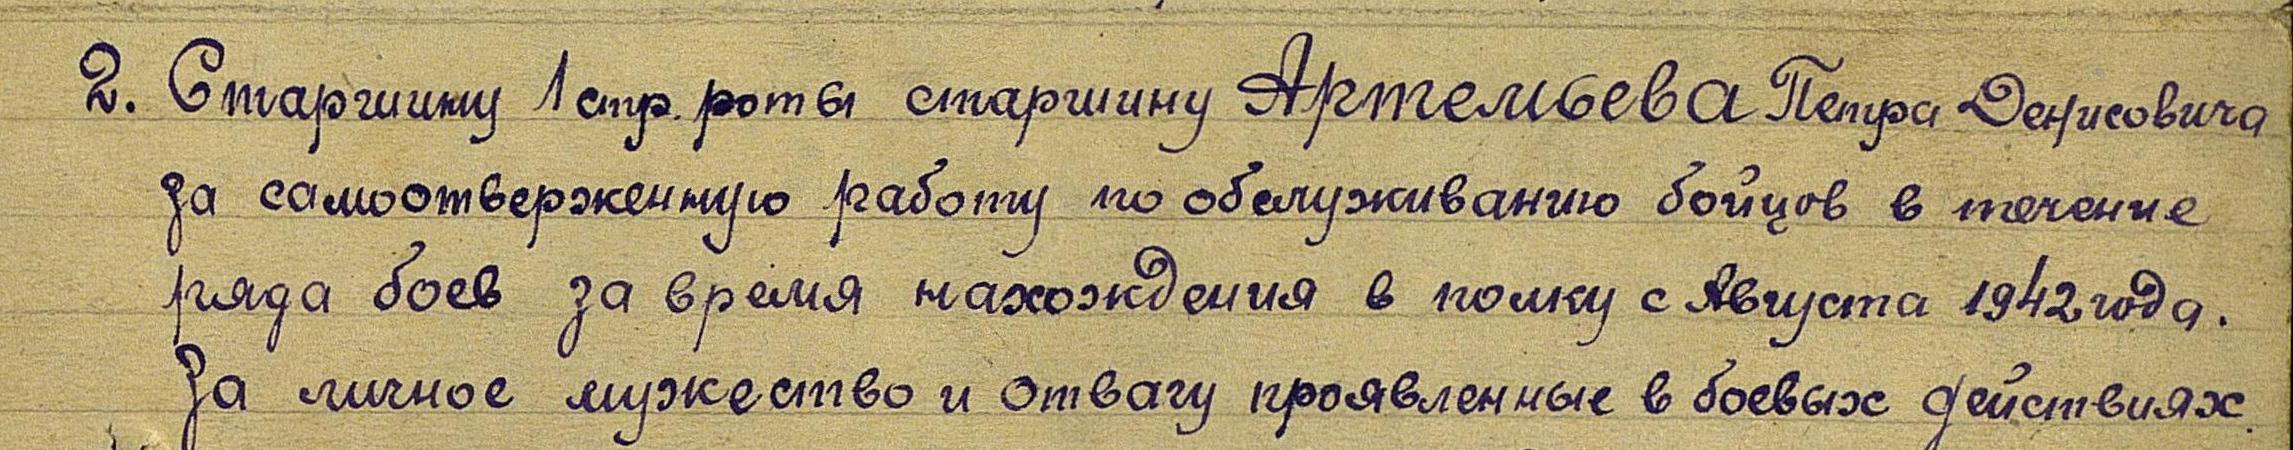 2. Старшину 1 стр. роты старшину Артемьева Петра Денисовича
за самоотверженную работу по обслуживанию бойцов в течение
ряда боев за время нахождения в полку с Августа 1942 года.
За личное мужество и отвагу проявленные в боевых действиях.